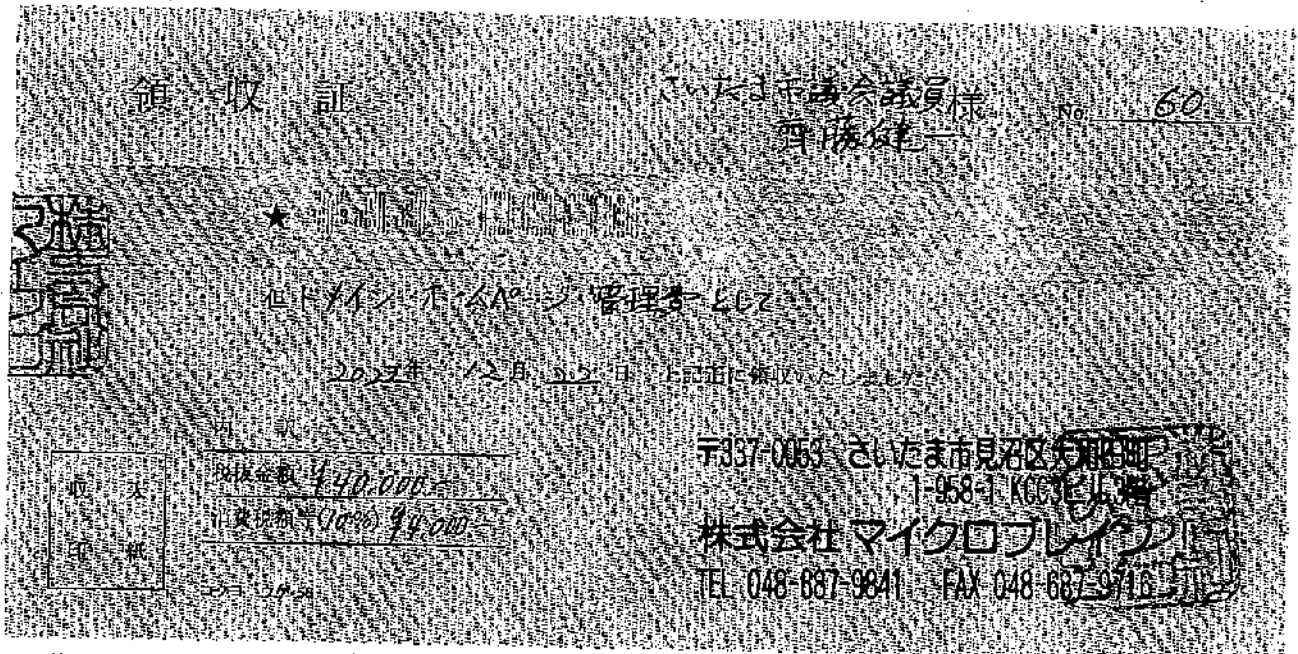 領収証
さいたま市議会議員 様
齊藤健一
No. 60
★
但ドメイン・ホームページ管理費として
12月 日 上記正に領収いたしました
内訳
税抜金額 ¥40,000.-
消費税額等(10%) ¥4,000.-
収入
印紙
〒337-0053 さいたま市見沼区大和田町
1-958-1 KCC3ビル3階
株式会社 マイクロブレイン
TEL 048-687-9841 FAX 048-687-9716